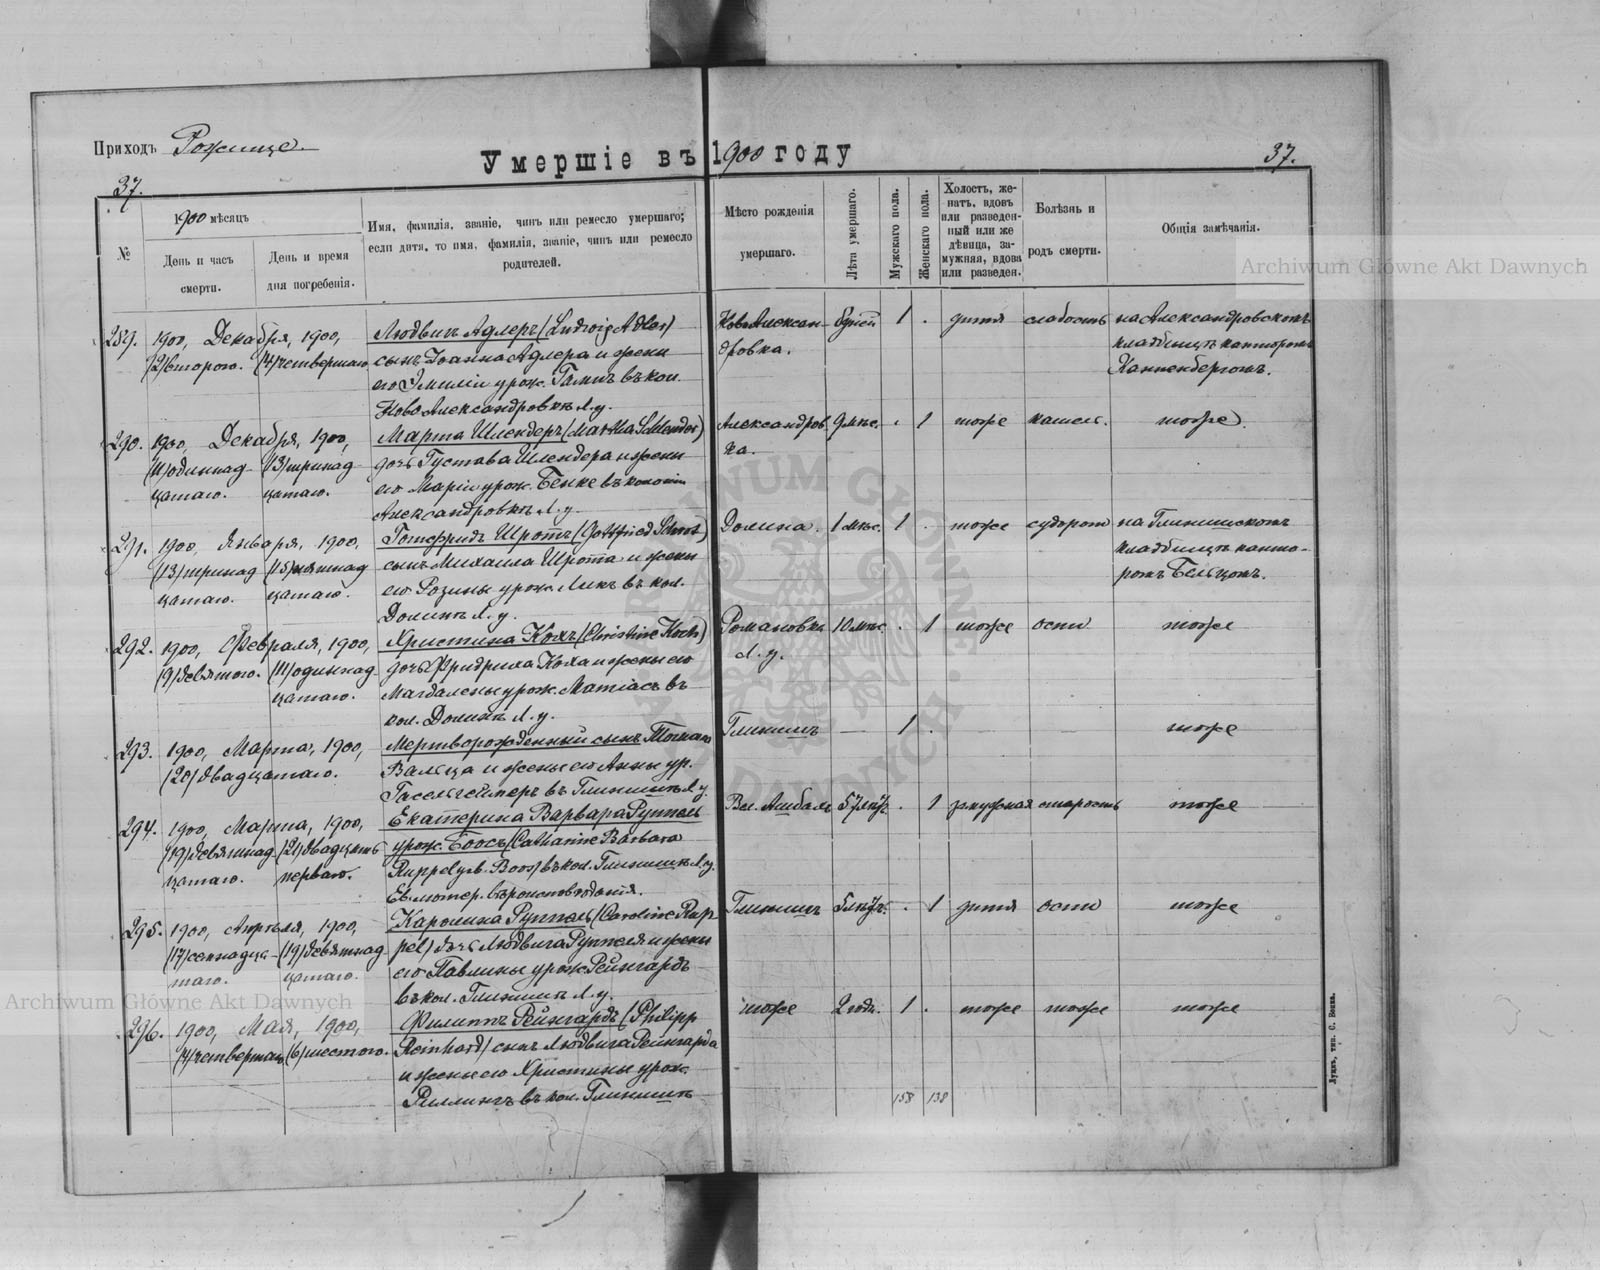 Приходъ Рожище.
Умершіе въ 1900 году
37.
37.
№
1900 мѣсяцъ
День и часъ
смерти.
День и время
дня погребенія.
Имя, фамилія, званіе, чинъ или ремесло умершаго;
если дитя, то имя, фамилія, званіе, чинъ или ремесло
родителей.
Мѣсто рожденія
умершаго.
Лѣта умершаго.
Мужскаго пола.
Женскаго пола.
Холостъ, же-
натъ, вдовъ
или разведен-
ный или же
дѣвица, за-
мужняя, вдова
или разведен.
Болѣзнь и
родъ смерти.
Общія замѣчанія.
289. 1900, Декабря, 1900,
(2) второго. (4) четвертаго
Людвигъ Адлеръ (Ludwig Adler)
сынъ Іоанна Адлера и жены
его Эмиліи урож. въ кол.
Ново Александровкѣ Л. у.
Ново Алексан-
дровка.
дней 1 . дитя слабость
на Александровскомъ
кладбищѣ канторомъ
290. 1900, Декабря, 1900,
(11) одиннад-
цатаго.
(13) тринад-
цатаго.
Марта Шлендеръ (Martha Schlender)
дочь Густава Шлендера и жены
его Маріи урож. Бенке въ колоніи
Александровкѣ Л. у.
Александров-
ка.
9 мѣс. . 1 тоже кашель. тоже.
291. 1900, Января, 1900,
(13) тринад
цатаго.
(15) пятнад
цатаго.
Готфридъ Шротъ (Gottfried Schrot)
сынъ Михаила Шрота и жены
его Розины урож. Ликъ въ кол.
Долинѣ Л. у.
Долина. 1 мѣс. 1 . тоже судороги
на Глинищскомъ
кладбищѣ канто-
ромъ
292. 1900, Февраля, 1900,
(9) девятого.
(11) одиннад-
цатаго.
Христина Кохъ (Christine Koch)
дочь Фридриха Коха и жены его
Магдалены урож. Матіасъ въ
кол. Долинѣ Л. у.
Романовка
Л. у.
10 мѣс. . 1 тоже оспа тоже
293. 1900, Марта, 1900,
(20) двадцатаго.
Мертворожденный сынъ
и жены его Анны ур.
въ Глинищѣ Л. у.
Глинищъ — 1 . тоже
294. 1900, Марта, 1900,
(19) девятнад
цатаго.
(21) двадцать
перваго.
Екатерина Варвара Руппель
урож. Боосъ (Catharine Barbara
Ruppel geb. Boos) въ кол. Глинищѣ Л. у.
Ев. лютер. вѣроисповѣданія.
57 лѣтъ . 1 замужняя старость тоже
295. 1900, Апрѣля, 1900,
(17) семнадца-
таго.
(19) девятнад
цатаго.
Каролина Руппель (Caroline Rup-
pel) дочь Людвига Руппеля и жены
его Павлины урож. Рейнгардъ
въ кол. Глинищѣ Л. у.
Глинищъ 5 лѣтъ. . 1 дитя оспа тоже
296. 1900, Мая, 1900,
(4) четвертаго (6) шестого.
Филиппъ Рейнгардъ (Philipp
Reinhard) сынъ Людвига Рейнгарда
и жены его Христины урож.
Риллингъ въ кол. Глинищѣ
тоже 2 года. 1 . тоже тоже тоже
158 138
Луцкъ, тип. С. Бонка.
Archiwum Główne Akt Dawnych
Archiwum Główne Akt Dawnych
ARCHIWUM GŁÓWNE AKT DAWNYCH